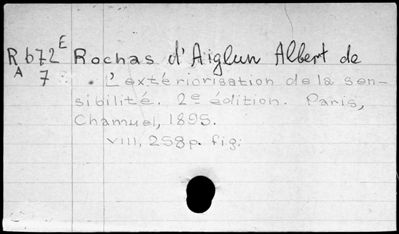 R b72E Rochas d'Aiglun Albert de
A 7 . L'extériorisation de la sen-
sibilité. 2e édition. Paris,
Chamuel, 1895.
VIII, 258p. fig.